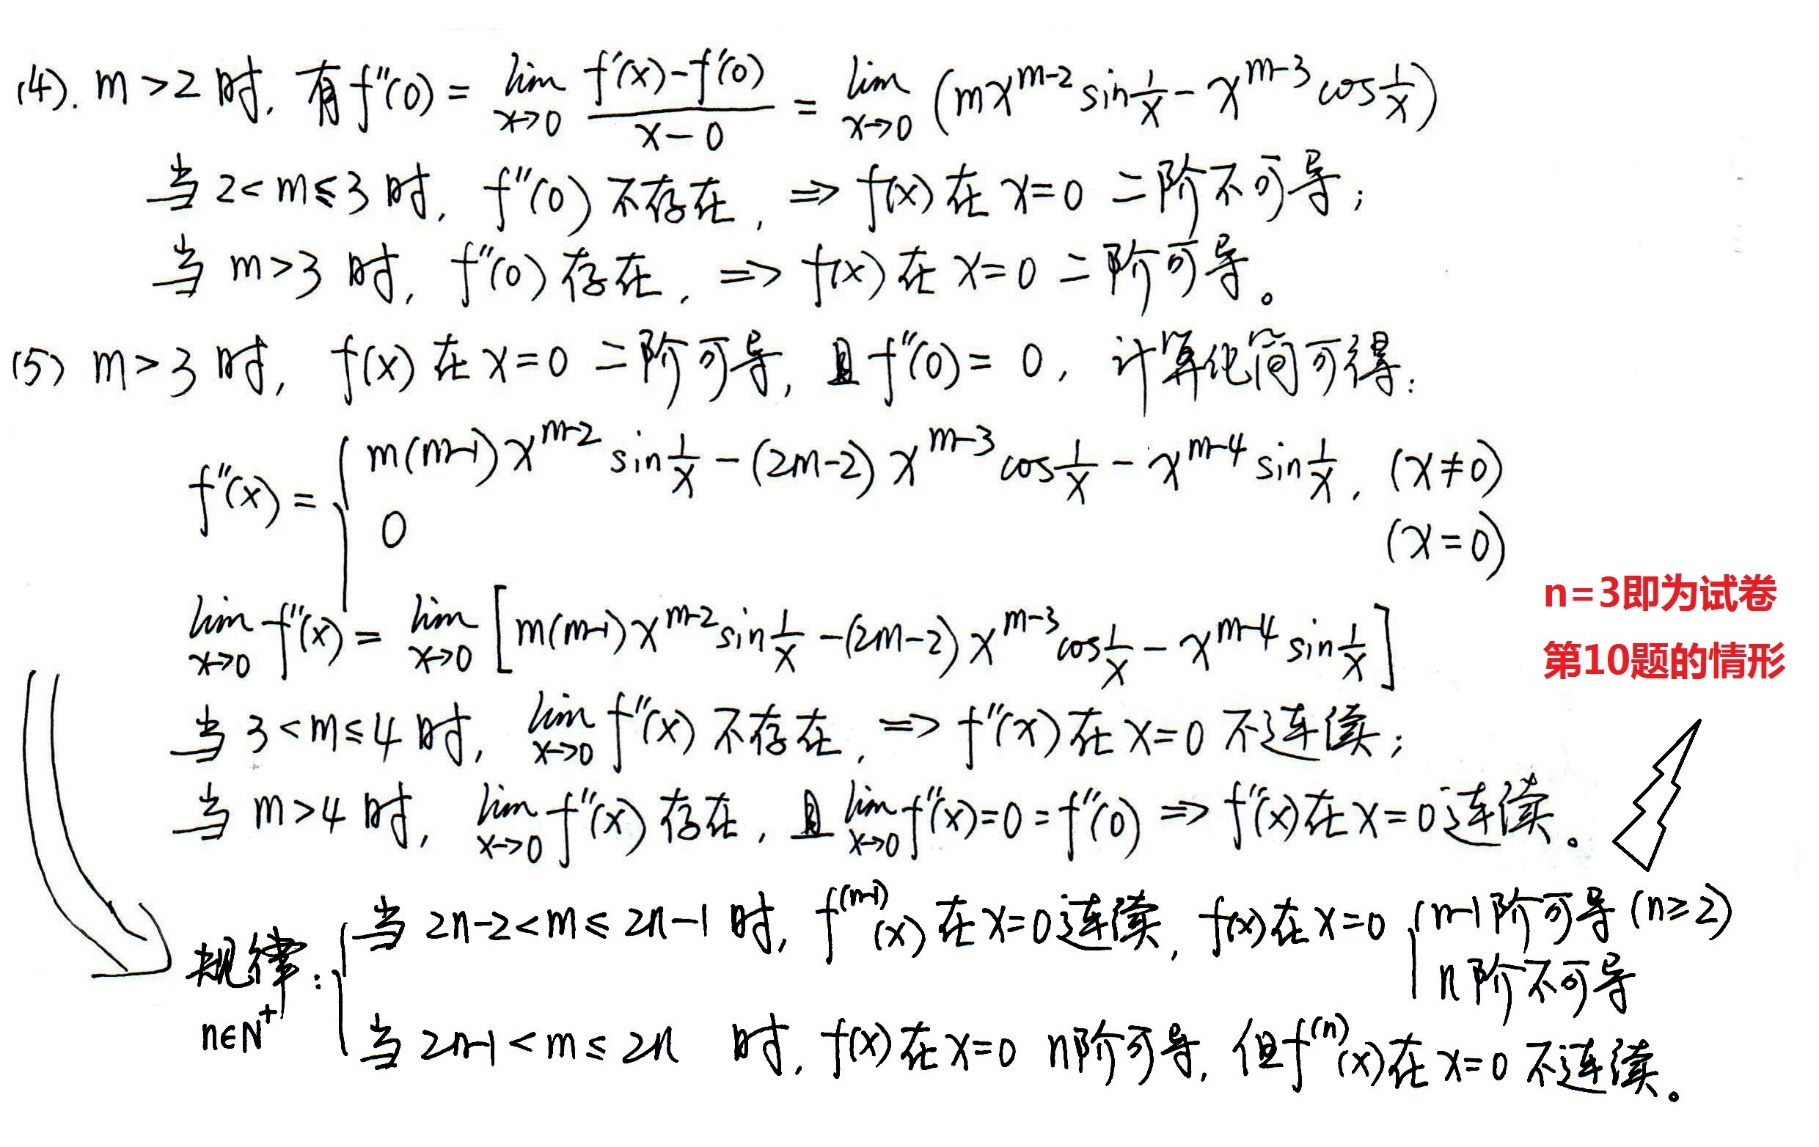 (4). m>2时, 有f''(0) = lim_{x→0} (f'(x)-f'(0))/(x-0) = lim_{x→0} (mx^{m-2} sin 1/x - x^{m-3} cos 1/x)
当2<m≤3时, f''(0)不存在, ⇒ f(x)在x=0二阶不可导;
当m>3时, f''(0)存在, ⇒ f(x)在x=0二阶可导。
(5) m>3时, f(x)在x=0二阶可导, 且f''(0)=0, 计算化简可得:
f''(x) = { m(m-1)x^{m-2} sin 1/x - (2m-2)x^{m-3} cos 1/x - x^{m-4} sin 1/x, (x≠0)
0 (x=0)
lim_{x→0} f''(x) = lim_{x→0} [m(m-1)x^{m-2} sin 1/x - (2m-2)x^{m-3} cos 1/x - x^{m-4} sin 1/x]
n=3即为试卷
第10题的情形
当3<m≤4时, lim_{x→0} f''(x)不存在, ⇒ f''(x)在x=0不连续;
当m>4时, lim_{x→0} f''(x)存在, 且lim_{x→0} f''(x)=0=f''(0) ⇒ f''(x)在x=0连续。
规律: { 当2n-2<m≤2n-1时, f^{(n-1)}(x)在x=0连续, f(x)在x=0 { n-1阶可导(n≥2)
n阶不可导
n∈N^+
当2n-1<m≤2n 时, f(x)在x=0 n阶可导, 但f^{(n)}(x)在x=0不连续。